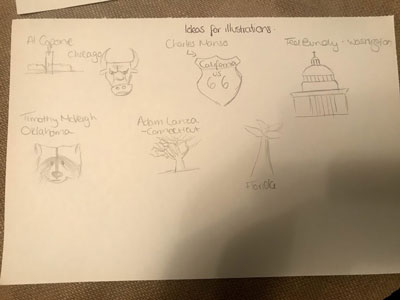 Ideas for illustrations.
Al Capone
Chicago
Charles Manson
California
US
66
Ted Bundy - Washington
Timothy McVeigh
Oklahoma
Adam Lanza
- Connecticut
Florida